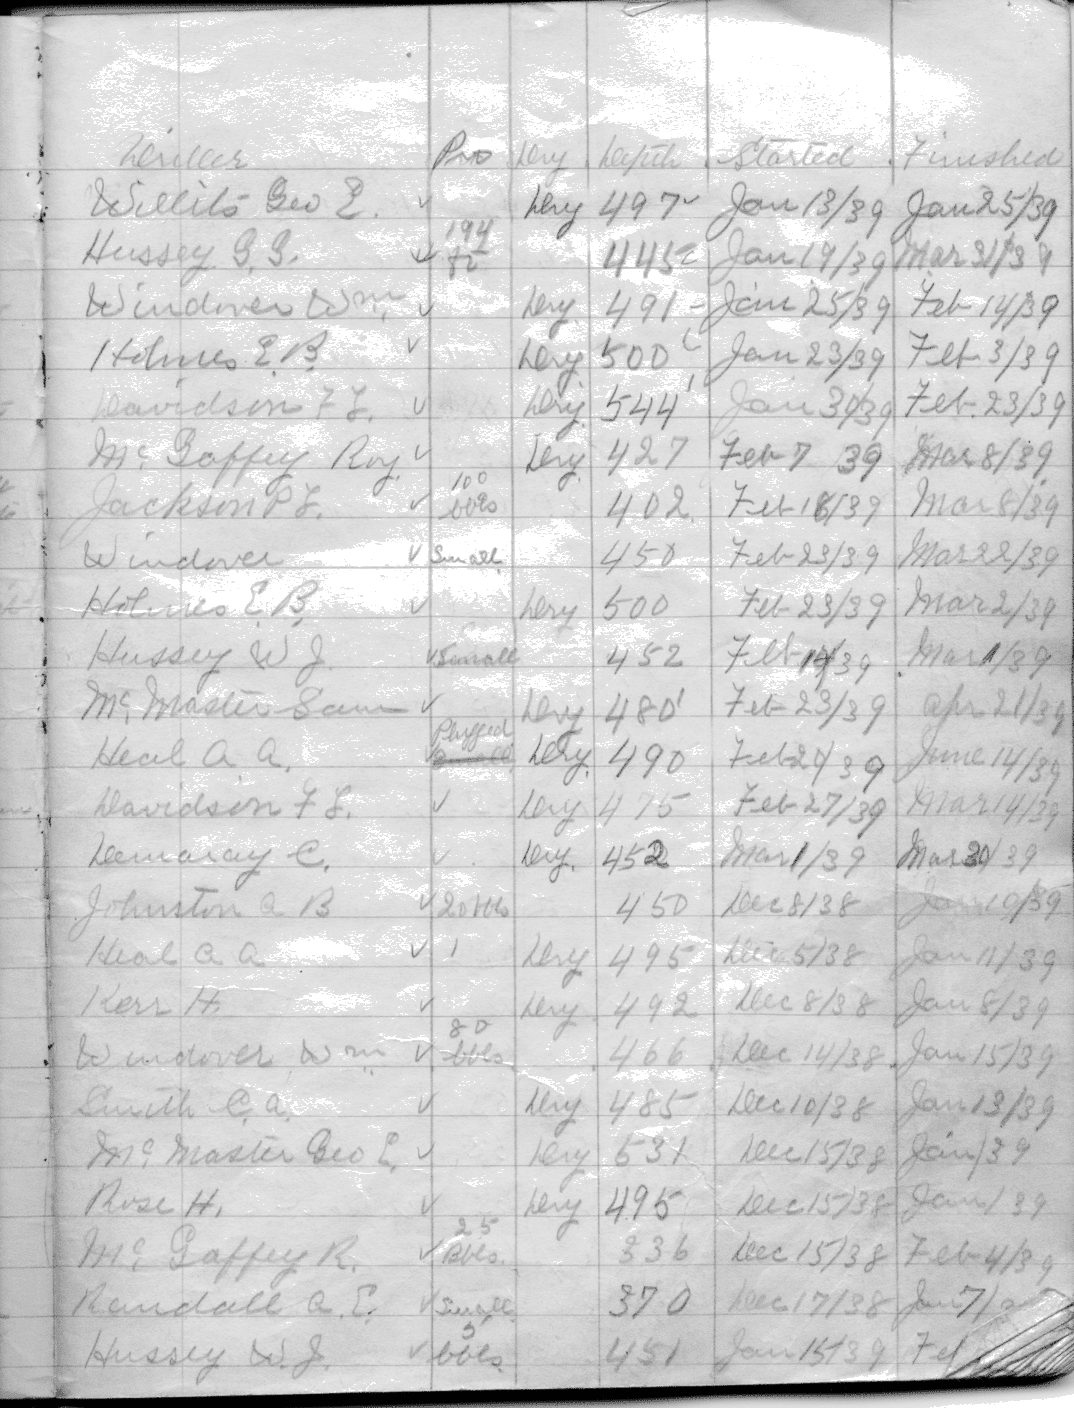 Driller Pro Dry Depth Started Finished
Willits Geo E. ✓ Dry 497 ✓ Jan 13/39 Jan 25/39
194
Hussey G. G. ✓ 82 445 Jan 19/39 Mar 31/39
Windover Wm ✓ Dry 491 - Jan 25/39 Feb 14/39
Holmes E. B. ✓ Dry 500 Jan 23/39 Feb 3/39
Davidson F L. ✓ Dry 544' Jan 30/39 Feb. 23/39
Mc Gaffey Roy. ✓ Dry 427 Feb 7 39 Mar 8/39
100
Jackson P L. ✓ bbls 402 Feb 16/39 Mar 8/39
Windover ✓ Small 450 Feb 23/39 Mar 22/39
Holmes E. B. ✓ Dry 500 Feb 23/39 Mar 2/39
Hussey W J. ✓ Small 452 Feb 14/39 Mar 1/39
Mc Master Sam ✓ Dry 480' Feb 23/39 Apr 21/39
Plugged
Heal A A. ✓ Small Dry. 490 Feb 20/39 June 14/39
Davidson F L. ✓ Dry 475 Feb 27/39 Mar 14/39
Demaray C. ✓ Dry. 452 Mar 1/39 Mar 30/39
Johnston A B ✓ 20 bbls 450 Dec 8/38 Jan 10/39
Heal A A ✓ 1 Dry 495 Dec 5/38 Jan 11/39
Kerr H. ✓ Dry 492 Dec 8/38 Jan 8/39
80
Windover Wm ✓ bbls 466 Dec 14/38 Jan 15/39
Smith C. A. ✓ Dry 485 Dec 10/38 Jan 13/39
Mc Master Geo E. ✓ Dry 531 Dec 15/38 Jan/39
Rose H. ✓ Dry 495 Dec 15/38 Jan/39
25
Mc Gaffey R. ✓ Bbls. 336 Dec 15/38 Feb 4/39
Randall A. E. ✓ Small 370 Dec 17/38 Jan 7/
5
Hussey W. J. ✓ bbls 451 Jan 15/39 Feb